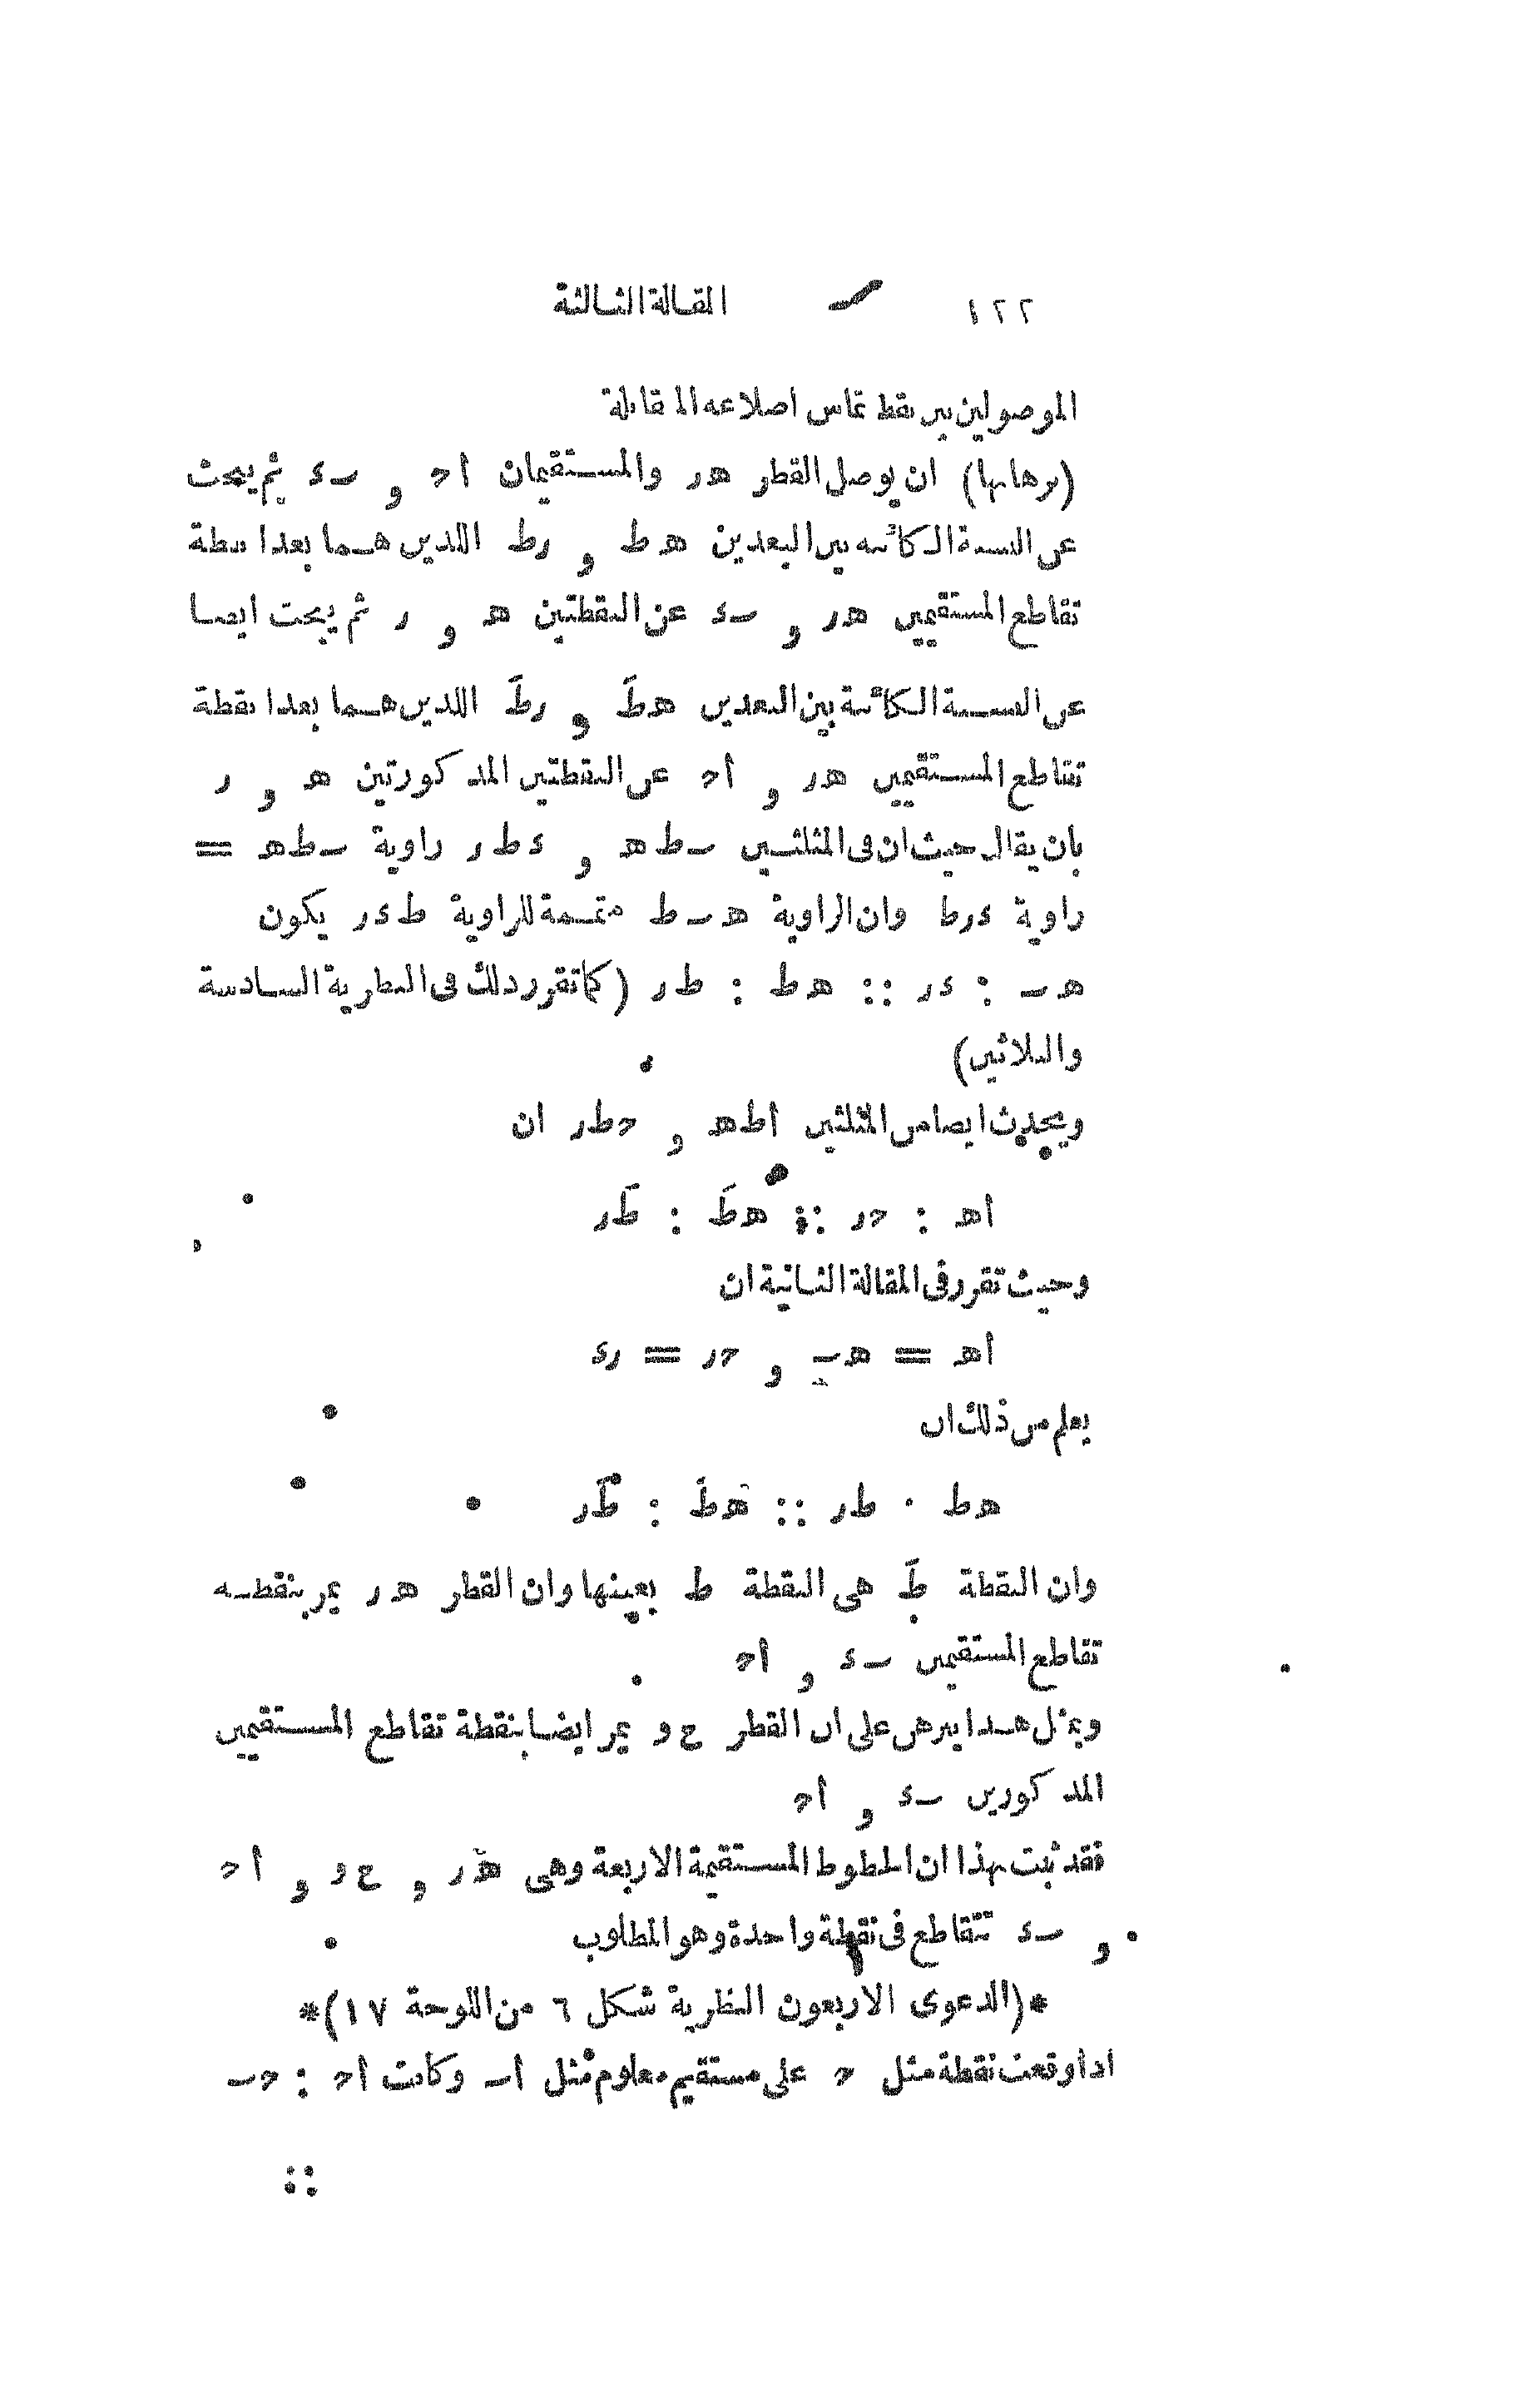 ١٢٢ المقالة الثالثة
الموصولين بين نقط تماس اضلاعه المقابلة
(برهانها) ان يوصل القطر هر والمستقيمان أح و ٮء ثم يبحث
عن النسبة الكائنة بين البعدين هط و رط اللذين هما بعدا نقطة
تقاطع المستقيمين هر و ٮء عن النقطتين ه و ر ثم يبحث ايضا
عن النسبة الكائنة بين البعدين هطَ و رطَ اللذين هما بعدا نقطة
تقاطع المستقيمين هر و أح عن النقطتين المذكورتين ه و ر
بان يقال حيث ان فى المثلثين ٮطه و ءطر زاوية ٮطه =
زاوية ءرط وان الزاوية هٮط متممة للزاوية طءر يكون
هٮ : ءر :: هط : طر (كما تقرر ذلك فى النظرية السادسة
والثلاثين)
ويحدث ايضا من المثلثين أطه و حطر ان
أه : حر :: هطَ : طَر
وحيث تقرر فى المقالة الثانية ان
أه = هٮ و حر = رء
يعلم من ذلك ان
هط : طر :: هطَ : طَر
وان النقطة طَ هى النقطة ط بعينها وان القطر هر يمر بنقطة
تقاطع المستقيمين ٮء و أح
وبمثل هذا يبرهن على ان القطر ع و يمر ايضا بنقطة تقاطع المستقيمين
المذكورين ٮء و أح
فقد ثبت بهذا ان الخطوط المستقيمة الاربعة وهى هر و ع و و أح
و ٮء تتقاطع فى نقطة واحدة وهو المطلوب
*(الدعوى الاربعون النظرية شكل ٦ من اللوحة ١٧)*
اذا وقعت نقطة مثل ح على مستقيم معلوم مثل أٮ وكانت أح : حٮ
::